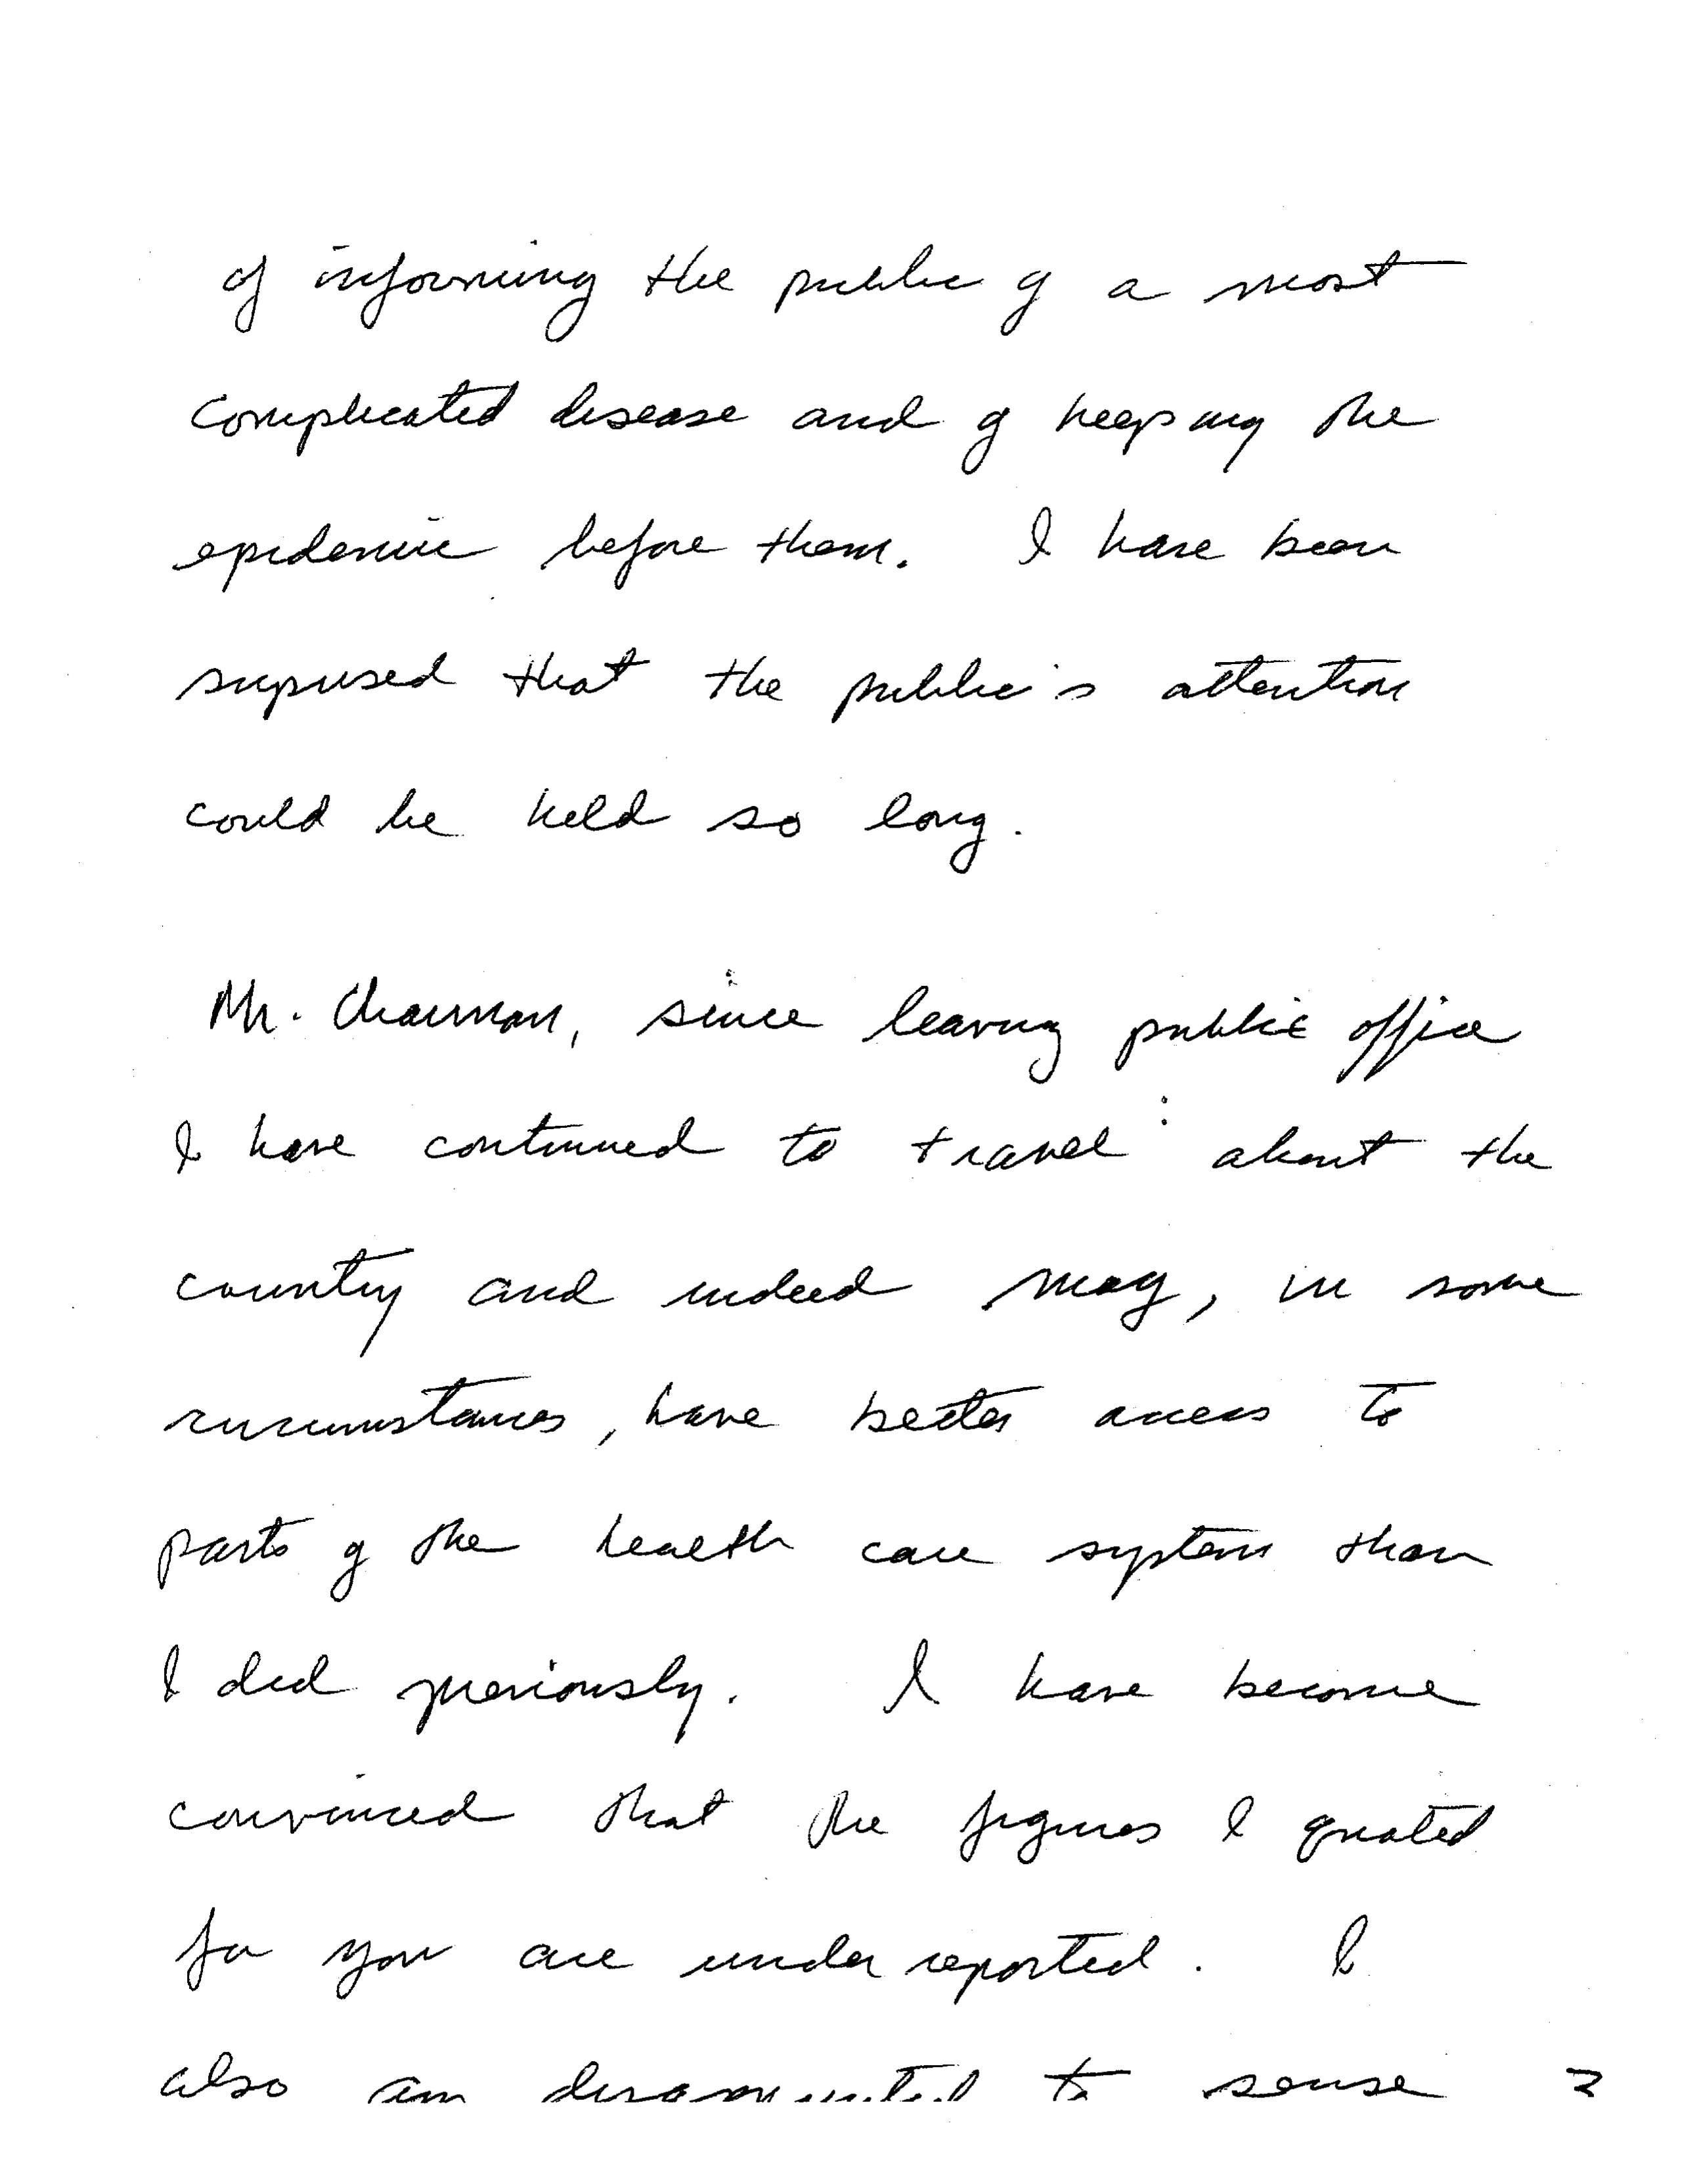 of informing the public of a most
complicated disease and of keeping the
epidemic before them. I have been
suprised that the public's attention
could be held so long.
Mr. Chairman, since leaving public office
I have continued to travel about the
country and indeed may, in some
circumstances, have better access to
parts of the health care system than
I did previously. I have become
convinced that the figures I quoted
for you are under reported. I
also am to sense